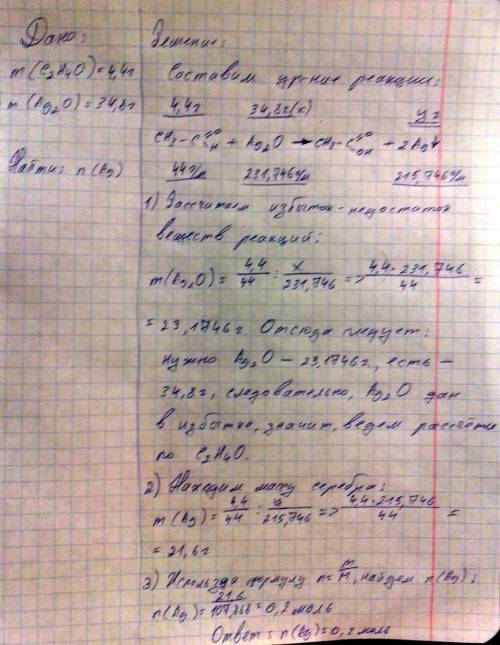 Дано:
m(C₂H₄O)=4,4г
m(Ag₂O)=34,8г
Найти: n(Ag)
Решение:
Составим ур-ние реакции:
4,4г 34,8г(х) у г
CH₃-C=O H + Ag₂O → CH₃-C=O OH + 2Ag↓
44г/м 231,746г/м 215,746г/м
1) Рассчитаем избыток-недостаток
веществ реакций:
m(Ag₂O)= 4,4/44 : x/231,746 => 4,4·231,746/44 =
= 23,1746г. Отсюда следует:
нужно Ag₂O – 23,1746г., есть –
34,8г, следовательно, Ag₂O дан
в избытке, значит, ведем рассчёты
по C₂H₄O.
2) Находим массу серебра:
m(Ag)= 4,4/44 : y/215,746 => 4,4·215,746/44 =
= 21,6г
3) Используя формулу n=m/M, найдем n(Ag):
n(Ag)= 21,6/107,868 = 0,2 моль
Ответ: n(Ag)=0,2 моль